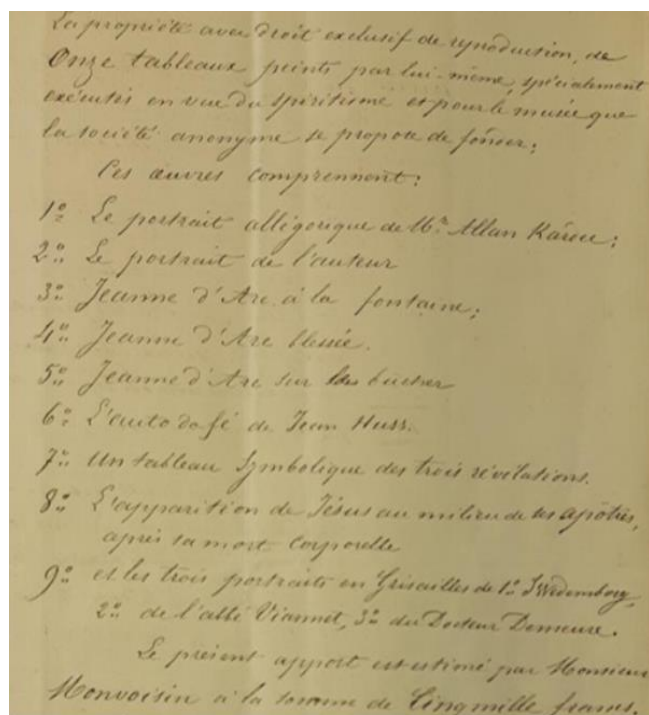 La propriété avec droit exclusif de reproduction, de
Onze tableaux peints par lui-même, spécialement
exécutés en vue du spiritisme et pour le musée que
la société anonyme se propose de fonder;
Ces œuvres comprennent:
1º Le portrait allégorique de Mr Allan Kardec;
2º Le portrait de l'auteur
3º Jeanne d'Arc à la fontaine;
4º Jeanne d'Arc blessée.
5º Jeanne d'Arc sur bûcher
6º L'auto da fé de Jean Huss.
7º Un tableau Symbolique des trois révélations.
8º L'apparition de Jésus au milieu de ses apôtres,
après sa mort Corporelle
9º et les trois portraits en Grisailles de 1º Swedemborg,
2º de l'abbé Viannet, 3º du Docteur Demeure.
Le présent apport est estimé par Monsieur
Monvoisin à la somme de Cinq mille francs.